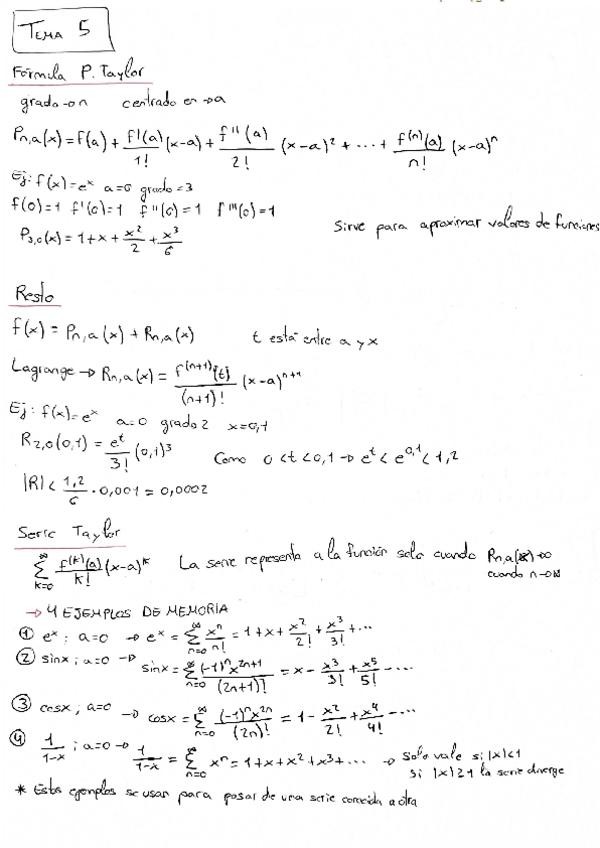 TEMA 5
Fórmula P. Taylor
grado→n centrado en→a
Pn,a(x)=f(a)+f'(a)/1!(x-a)+f''(a)/2!(x-a)²+...+f⁽ⁿ⁾(a)/n!(x-a)ⁿ
Ej: f(x)=eˣ a=0 grado=3
f(0)=1 f'(0)=1 f''(0)=1 f'''(0)=1
Sirve para aproximar valores de funciones
P3,0(x)=1+x+x²/2+x³/6
Resto
f(x)=Pn,a(x)+Rn,a(x) t está entre a y x
Lagrange→Rn,a(x)=f⁽ⁿ⁺¹⁾(t)/(n+1)!(x-a)ⁿ⁺¹
Ej: f(x)=eˣ a=0 grado 2 x=0,1
R2,0(0,1)=eᵗ/3!(0,1)³ Como 0<t<0,1→eᵗ<e^0,1<1,2
|R|<1,2/6·0,001=0,0002
Serie Taylor
∑k=0^∞ f⁽ᵏ⁾(a)/k!(x-a)ᵏ La serie representa a la función solo cuando Rn,a(x)→0
cuando n→∞
→4 EJEMPLOS DE MEMORIA
① eˣ; a=0 → eˣ=∑n=0^∞ xⁿ/n!=1+x+x²/2!+x³/3!+...
② sinx; a=0 → sinx=∑n=0^∞ (-1)ⁿx²ⁿ⁺¹/(2n+1)!=x-x³/3!+x⁵/5!-...
③ cosx; a=0 → cosx=∑n=0^∞ (-1)ⁿx²ⁿ/(2n)!=1-x²/2!+x⁴/4!-...
④ 1/1-x; a=0→ 1/1-x=∑n=0^∞ xⁿ=1+x+x²+x³+... → Solo vale si |x|<1
si |x|≥1 la serie diverge
* Estos ejemplos se usar para pasar de una serie conocida a otra